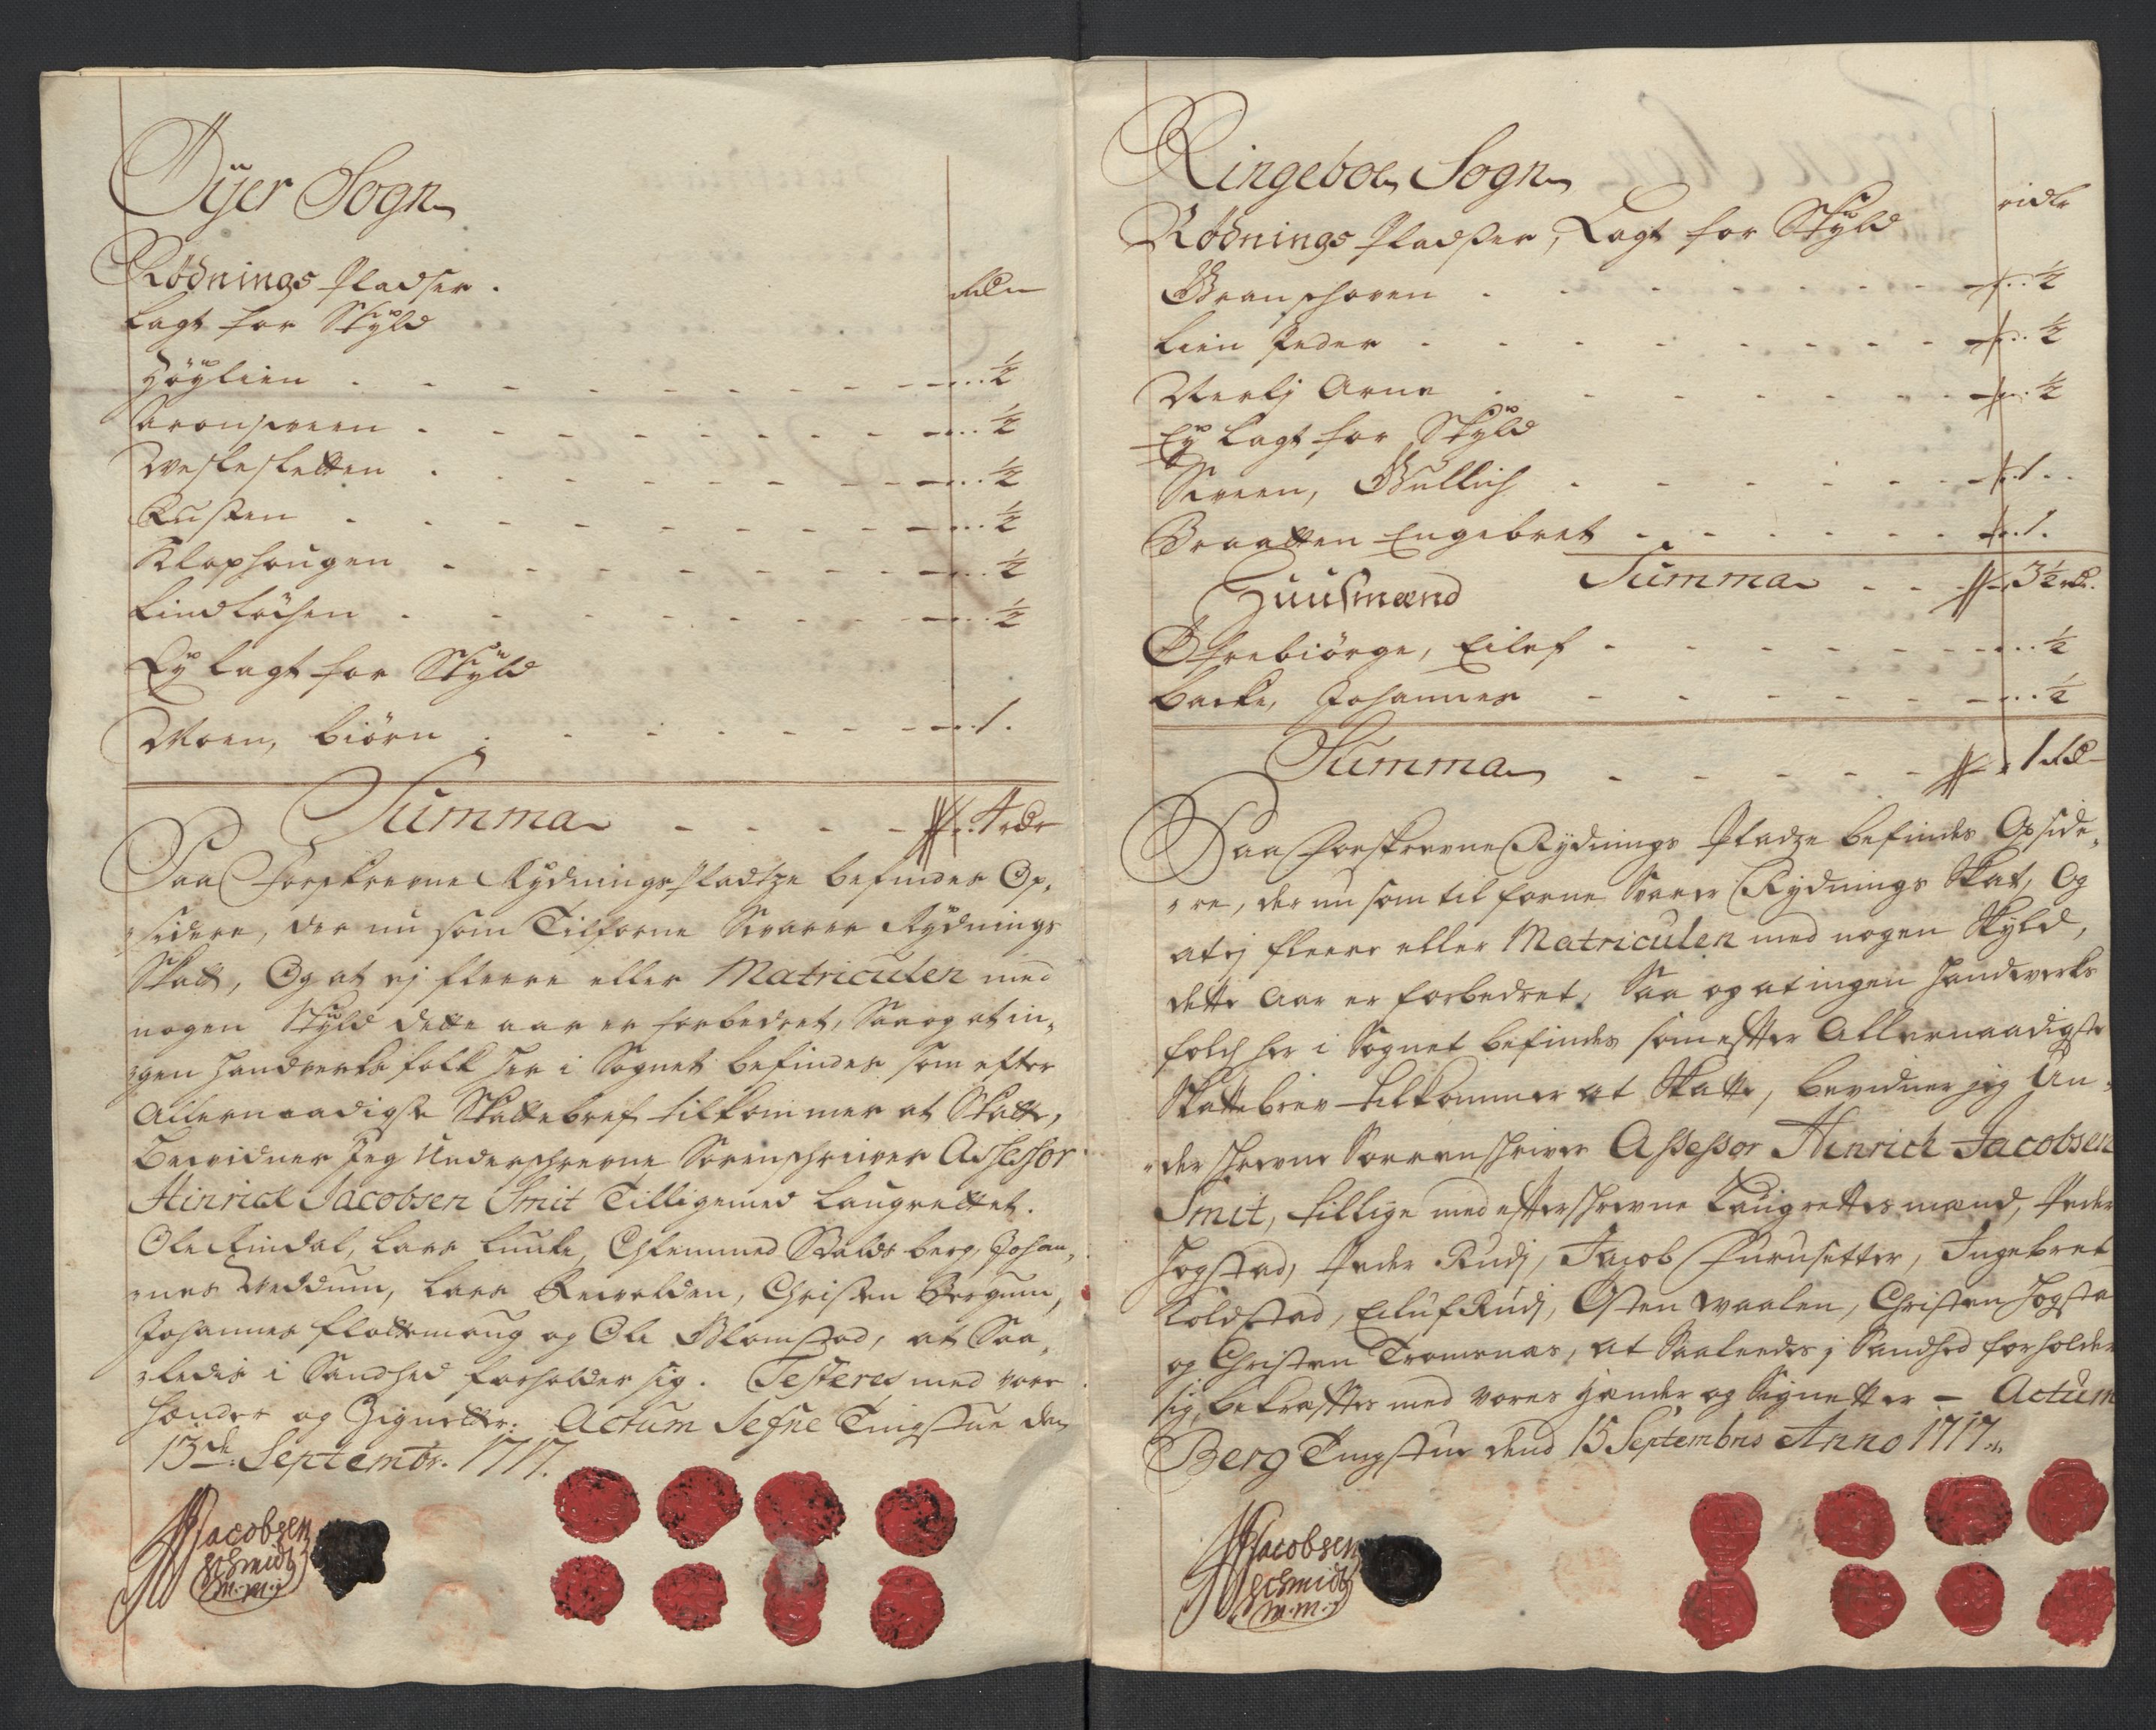 Öyer Sogn
Rödnings Pladser.
Lagt for Skyld
Rdlr
Höylien ½
Aronsveen ½
Westesletten ½
Rusten ½
Klaphougen ½
Lindlöchen ½
Ey lagt for Skyld
Moen, Biörn 1.
Summa 4 rdr
Saa forskrevne Rydnings Pladtze befindes Op-
sidere, der nu som Tilforne Svarer Rydnings
Skatt, Og at ej fleere eller Matriculen med
nogen Skyld dette aar er forbedret, Saa og at in-
gen Handverks folk her i Sognet befindes som efter
Allernaadigste Skattebref tilkommer at Skatte,
Bevidner Jeg Underschrevne Sorenschriver Assessor
Hinrich Jacobsen Smit Tilligemed Laugrettet.
Ole Lindal, Lars Lunke, Chlemmed Svaldsberg, Johan-
nes Meddum, Lars Revolden, Christen Bergum,
Johannes Flottemoug og Ole Blomstad, at Saa-
ledis i Sandhed forholder sig. Testeres med vore
Hænder og Zignetter. Actum Sefne Tingstue den
13de Septembr. 1717.
HJacobsen
Schmidt
m.m.
Ringeboe Sogn
Rödnings Pladser, Lagt for Skyld
ridlr
Granschoven ½
Lien Peder ½
Merlj Arne ½
Ey lagt for Skyld
Sveen, Gullich 1
Braatten Engebret 1.
Summa 3½ rd.
Huusmænd
Ofrebiörge, Eilef ½
Backe, Johannes ½
Summa 1 Rd
Saa Forskrevne Rydnings Pladze befindes Opside-
re, der nu som tilforne Svarer Rydnings Skat, Og
at ej fleere eller Matriculen med nogen Skyld,
dette Aar er forbedret, Saa og at ingen Handverks
folch her i Sognet befindes som efter Allernaadigste
Skattebrev tilkommer at Skatte, bevidner jeg Un-
derschrevne Sorrenschriver Assessor Hinrich Jacobsen
Smit, tillige med efterschrevne Laugrettes mænd, Peder
Jogstad, Peder Rudj, Jacob Furusetter, Ingebret
Koldstad, Eiluf Rudj, Osten Waalen, Christen Jogsta
og Christen Tromsnas, at Saaleedes j Sandhed forholder
sig, bekræfter med vores Hænder og Signetter – Actum
Berg Tingstue dend 15 Septembris Anno 1717
HJacobsen
Schmidt
m.m.